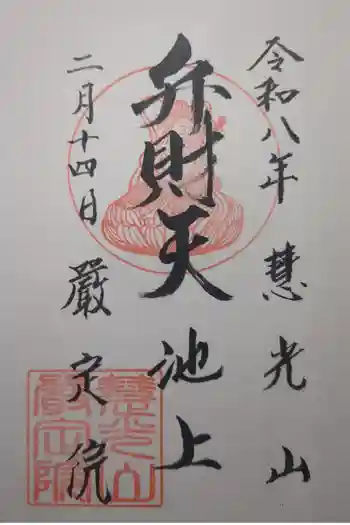 令和八年 慧光山
弁財天 池上
二月十四日 厳定院
慧光山
厳定院